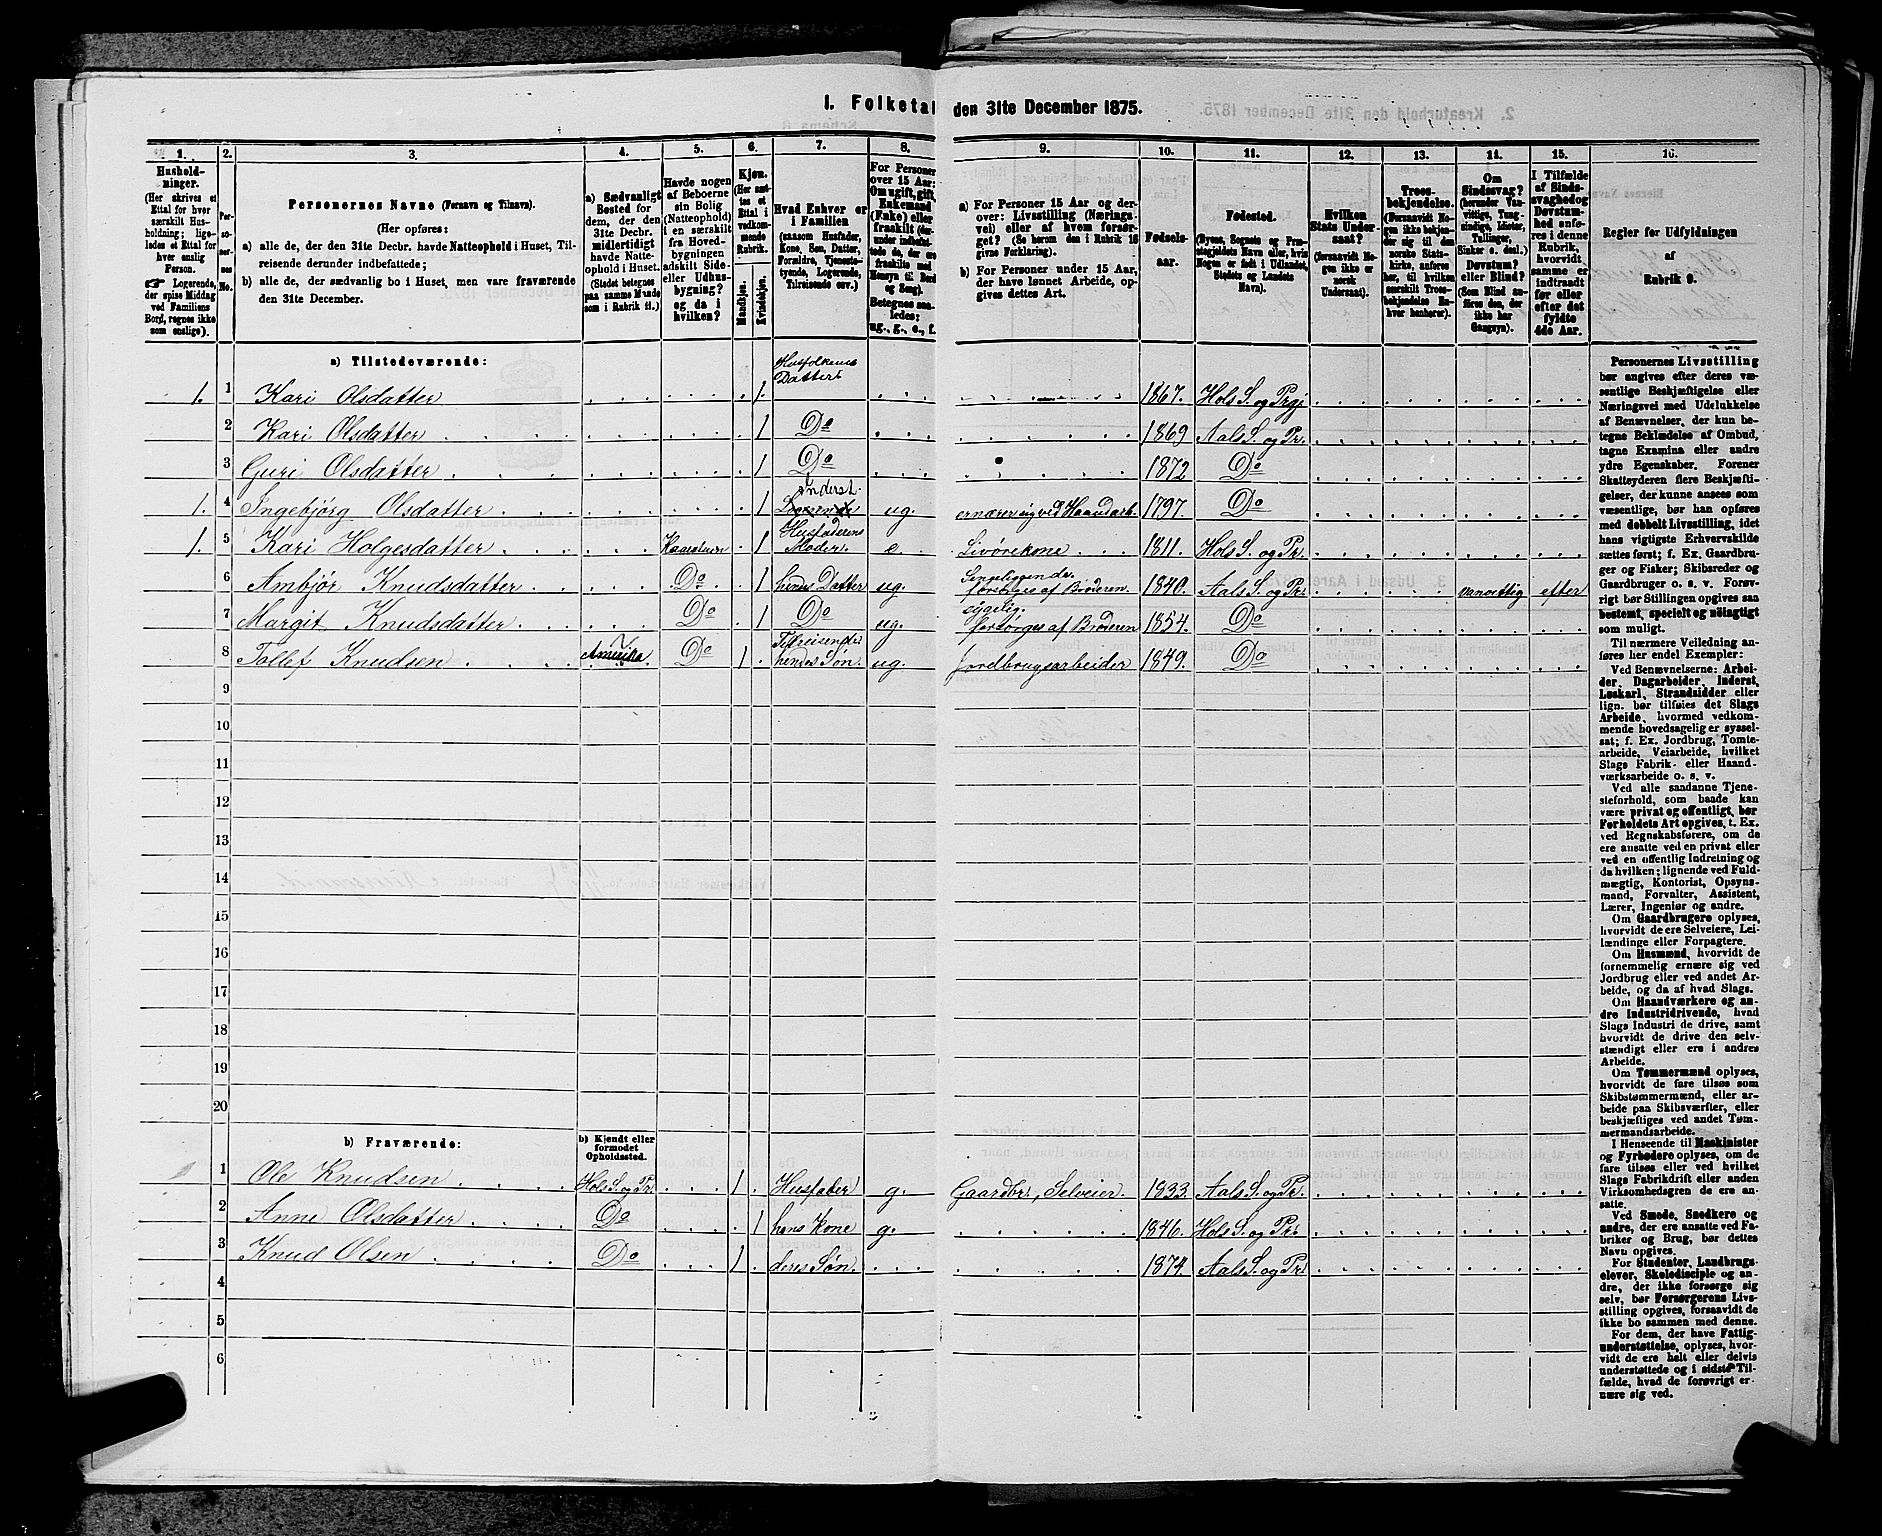 1. Folketal den 31te December 1875.
1. 2. 3. 4. 5. 6. 7. 8. 9. 10. 11. 12. 13. 14. 15. 16.
Hushold-
ninger.
(Her skrives et
Ettal for hver
særskilt Hus-
holdning; lige-
ledes et Ettal for
hver enslig
Person.
☛ Logerende,
der spise Middag
ved Familiens
Bord, regnes ikke
som enslige).
Per-
so-
ner-
nes
No.
Personernes Navne (Fornavn og Tilnavn).
(Her opføres:
a) alle de, der den 31te Decbr. havde Natteophold i Huset, Til-
reisende derunder indbefattede;
b) alle de, der sædvanlig bo i Huset, men vare fraværende
den 31te December.
a) Sædvanligt
Bosted for
dem, der den
31te Decbr.
midlertidigt
havde Natte-
ophold i Huset.
(Stedet betegnes
paa samme Maade
som i Rubrik 11.)
Havde nogen
af Beboerne
sin Bolig
(Natteophold)
i en særskilt
fra Hoved-
bygningen
adskilt Side-
eller Udhus-
bygning?
og da i
hvilken?
Kjøn.
(Her sæt-
tes et
Ettal i
vedkom-
mende
Rubrik.
Mandkjøn.
Kvindekjøn.
Hvad Enhver er
i Familien
(saasom Husfader,
Kone, Søn, Datter,
Forældre, Tjeneste-
tyende, Logerende,
Tilreisende osv.)
For Personer
over 15 Aar:
Om ugift, gift,
Enkemand
(Enke) eller
fraskilt (der-
under indbefat-
tede de, der ere
fraskilte med
Hensyn til Bord
og Seng).
Betegnes saa-
ledes:
ug., g., e., f.
a) For Personer 15 Aar og der-
over: Livsstilling (Nærings-
vei) eller af hvem forsør-
get? (Se herom den i Rubrik 16
givne Forklaring).
b) For Personer under 15 Aar,
der have lønnet Arbeide, op-
gives dettes Art.
Fødsels-
aar.
Fødested.
(Byens, Sognets og Præ-
stegjeldets Navn eller, hvis
Nogen er født i Udlandet,
Stedets og Landets
Navn).
Hvilken
Stats Under-
saat?
(forsaavidt No-
gen ikke er
norsk
Undersaat).
Troes-
bekjendelse.
(Forsaavidt No-
gen ikke bekjen-
der sig til den
norske Stats-
kirke, anføres
her, til hvilken
særskilt Troes-
bekjendelse En-
hver henhører).
Om
Sindssvag?
(herunder Van-
vittige, Tung-
sindige, Idioter,
Tullinger,
Sinker o. desl.)
Døvstum?
eller Blind?
(Som Blind an-
føres den, der
ikke har
Gangsyn).
I Tilfælde
af Sinds-
svaghed og
Døvstum-
hed anfø-
res i denne
Rubrik,
hvorvidt
samme er
indtraadt
før eller
efter det
fyldte
4de Aar.
Regler for Udfyldningen
af
Rubrik 9.
a) Tilstedeværende:
1. 1 Kari Olsdatter 1. Husfolkens Datter 1867. Hols S. og Prgj
2 Kari Olsdatter 1 Do 1869 Aals S. og Pr.
3 Guri Olsdatter 1 Do 1872 Do
1. 4 Ingebjørg Olsdatter 1 Inderst ug. ernærer sig ved Haandarb. 1797. Do
1. 5 Kari Holgesdatter Kaarstuen 1 Husfaderens Moder. e Livørekone 1811. Hols S. og Pr.
6 Ambjør Knudsdatter Do 1 hendes Datter ug. Sengeliggende. forsørges af Broderen 1840. Aals S. og Pr. vanvittig efter
7 Margit Knudsdatter Do 1 Do ug. sygelig. forsørges af Broderen 1854. Do
8 Tollef Knudsen Amerika. Do 1 Tilreisende hendes Søn. ug. Jordbrugsarbeider 1849. Do
9
10
11
12
13
14
15
16
17
18
19
20
b) Fraværende:
b) Kjendt eller
formodet
Opholdssted.
1 Ole Knudsen Hols S. og Pr. 1 Husfader g. Gaardbr., Selveier. 1833. Aals S. og Pr.
2 Anne Olsdatter Do 1 hans Kone g. 1846. Hols S. og Pr.
3 Knud Olsen Do 1 deres Søn. 1874. Aals S. og Pr.
4
5
6
Personernes Livsstilling
bør angives efter deres væ-
sentlige Beskjæftigelse eller
Næringsvei med Udelukkelse
af Benævnelser, der kun be-
tegne Beklædelse af Ombud,
tagne Examina eller andre
ydre Egenskaber. Forener
Skatteyderen flere Beskjæfti-
gelser, der kunne ansees som
væsentlige, bør han opføres
med dobbelt Livsstilling, idet
hans vigtigste Erhvervskilde
sættes først; f. Ex. Gaardbru-
ger og Fisker; Skibsreder og
Gaardbruger o. s. v. Forøv-
rigt bør Stillingen opgives saa
bestemt, specielt og nøiagtigt
som muligt.
Til nærmere Veiledning an-
føres her endel Exempler:
Ved Benævnelserne: Arbei-
der, Dagarbeider, Inderst,
Løskarl, Strandsidder eller
lign. bør tilføies det Slags
Arbeide, hvormed vedkom-
mende hovedsagelig er syssel-
sat; f. Ex. Jordbrug, Tomte-
arbeide, Veiarbeide, hvilket
Slags Fabrik- eller Haand-
værksarbeide o. s. v.
Ved alle saadanne Tjene-
steforhold, som baade kan
være privat og offentligt, bør
Forholdets Art opgives, t. Ex.
ved Regnskabsførere, om de
ere ansatte ved en privat eller
ved en offentlig Indretning og
da hvilken; lignende ved Fuld-
mægtig, Kontorist, Opsyns-
mand, Forvalter, Assistent,
Lærer, Ingeniør og andre.
Om Gaardbrugere oplyses,
hvorvidt de ere Selveiere, Lei-
lændinge eller Forpagtere.
Om Husmænd, hvorvidt de
fornemmelig ernære sig ved
Jordbrug eller ved andet Ar-
beide, og da af hvad Slags.
Om Haandværkere og an-
dre Industridrivende, hvad
Slags Industri de drive, samt
hvorvidt de drive den selv-
stændigt eller ere i andres
Arbeide.
Om Tømmermænd oplyses,
hvorvidt de fare tilsøs som
Skibstømmermænd, eller ar-
beide paa Skibsværfter, eller
beskjæftiges ved andet Tøm-
mermandsarbeide.
I Henseende til Maskinister
og Fyrbødere oplyses, om de
fare tilsøs eller ved hvilket
Slags Fabrikdrift eller anden
Virksomhedsgren de ere an-
satte.
Ved Smede, Snedkere og
andre, der ere ansatte ved Fa-
briker og Brug, bør dettes
Navn opgives.
For Studenter, Landbrugs-
elever, Skoledisciple og an-
dre, der ikke forsørge sig
selv, bør Forsørgerens Livs-
stilling opgives, forsaavidt de
ikke bo sammen med denne.
For dem, der have Fattig-
understøttelse, oplyses, hvor-
vidt de ere helt eller delvis
understøttede og i sidste Til-
fælde, hvad de forøvrigt er-
nære sig ved.